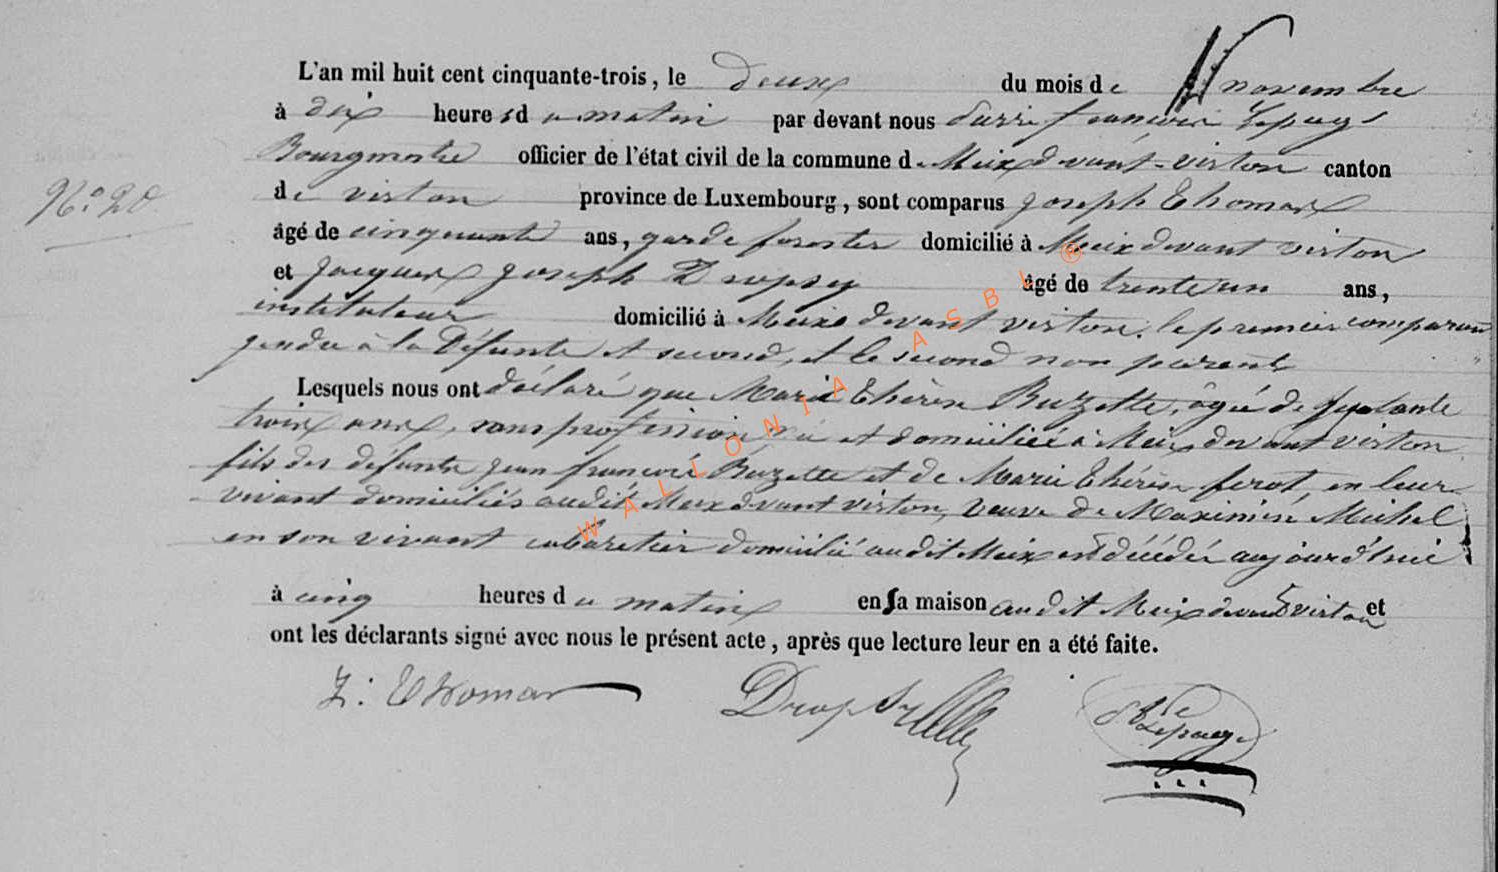 L'an mil huit cent cinquante-trois, le deux du mois de novembre
à dix heures du matin par devant nous françois Lepage
Bourgmestre officier de l'état civil de la commune de Meix devant-virton canton
N° 20
de virton province de Luxembourg, sont comparus joseph Thomas
âgé de cinquante ans, garde forestier domicilié à Meix devant virton
et jacques joseph Dropsy âgé de trente un ans,
instituteur domicilié à Meix devant virton. le premier comparant
gendre à la Défunte et second, et le second non parent
Lesquels nous ont déclaré que Marie Thérèse Buzette, âgée de
trois ans, sans profession, née et domiciliée à Meix devant virton
fils des défunts jean françois Buzette et de Marie Thérèse ferot, en leur
vivant domiciliés audit Meix devant virton, veuve de Maximin Michel
en son vivant cabaretier domicilié audit Meix est décédée aujourd'hui
à cinq heures du matin en sa maison audit Meix devant virton et
ont les déclarants signé avec nous le présent acte, après que lecture leur en a été faite.
Thomas Dropsy Lepage
WALLONIA ASBL ®